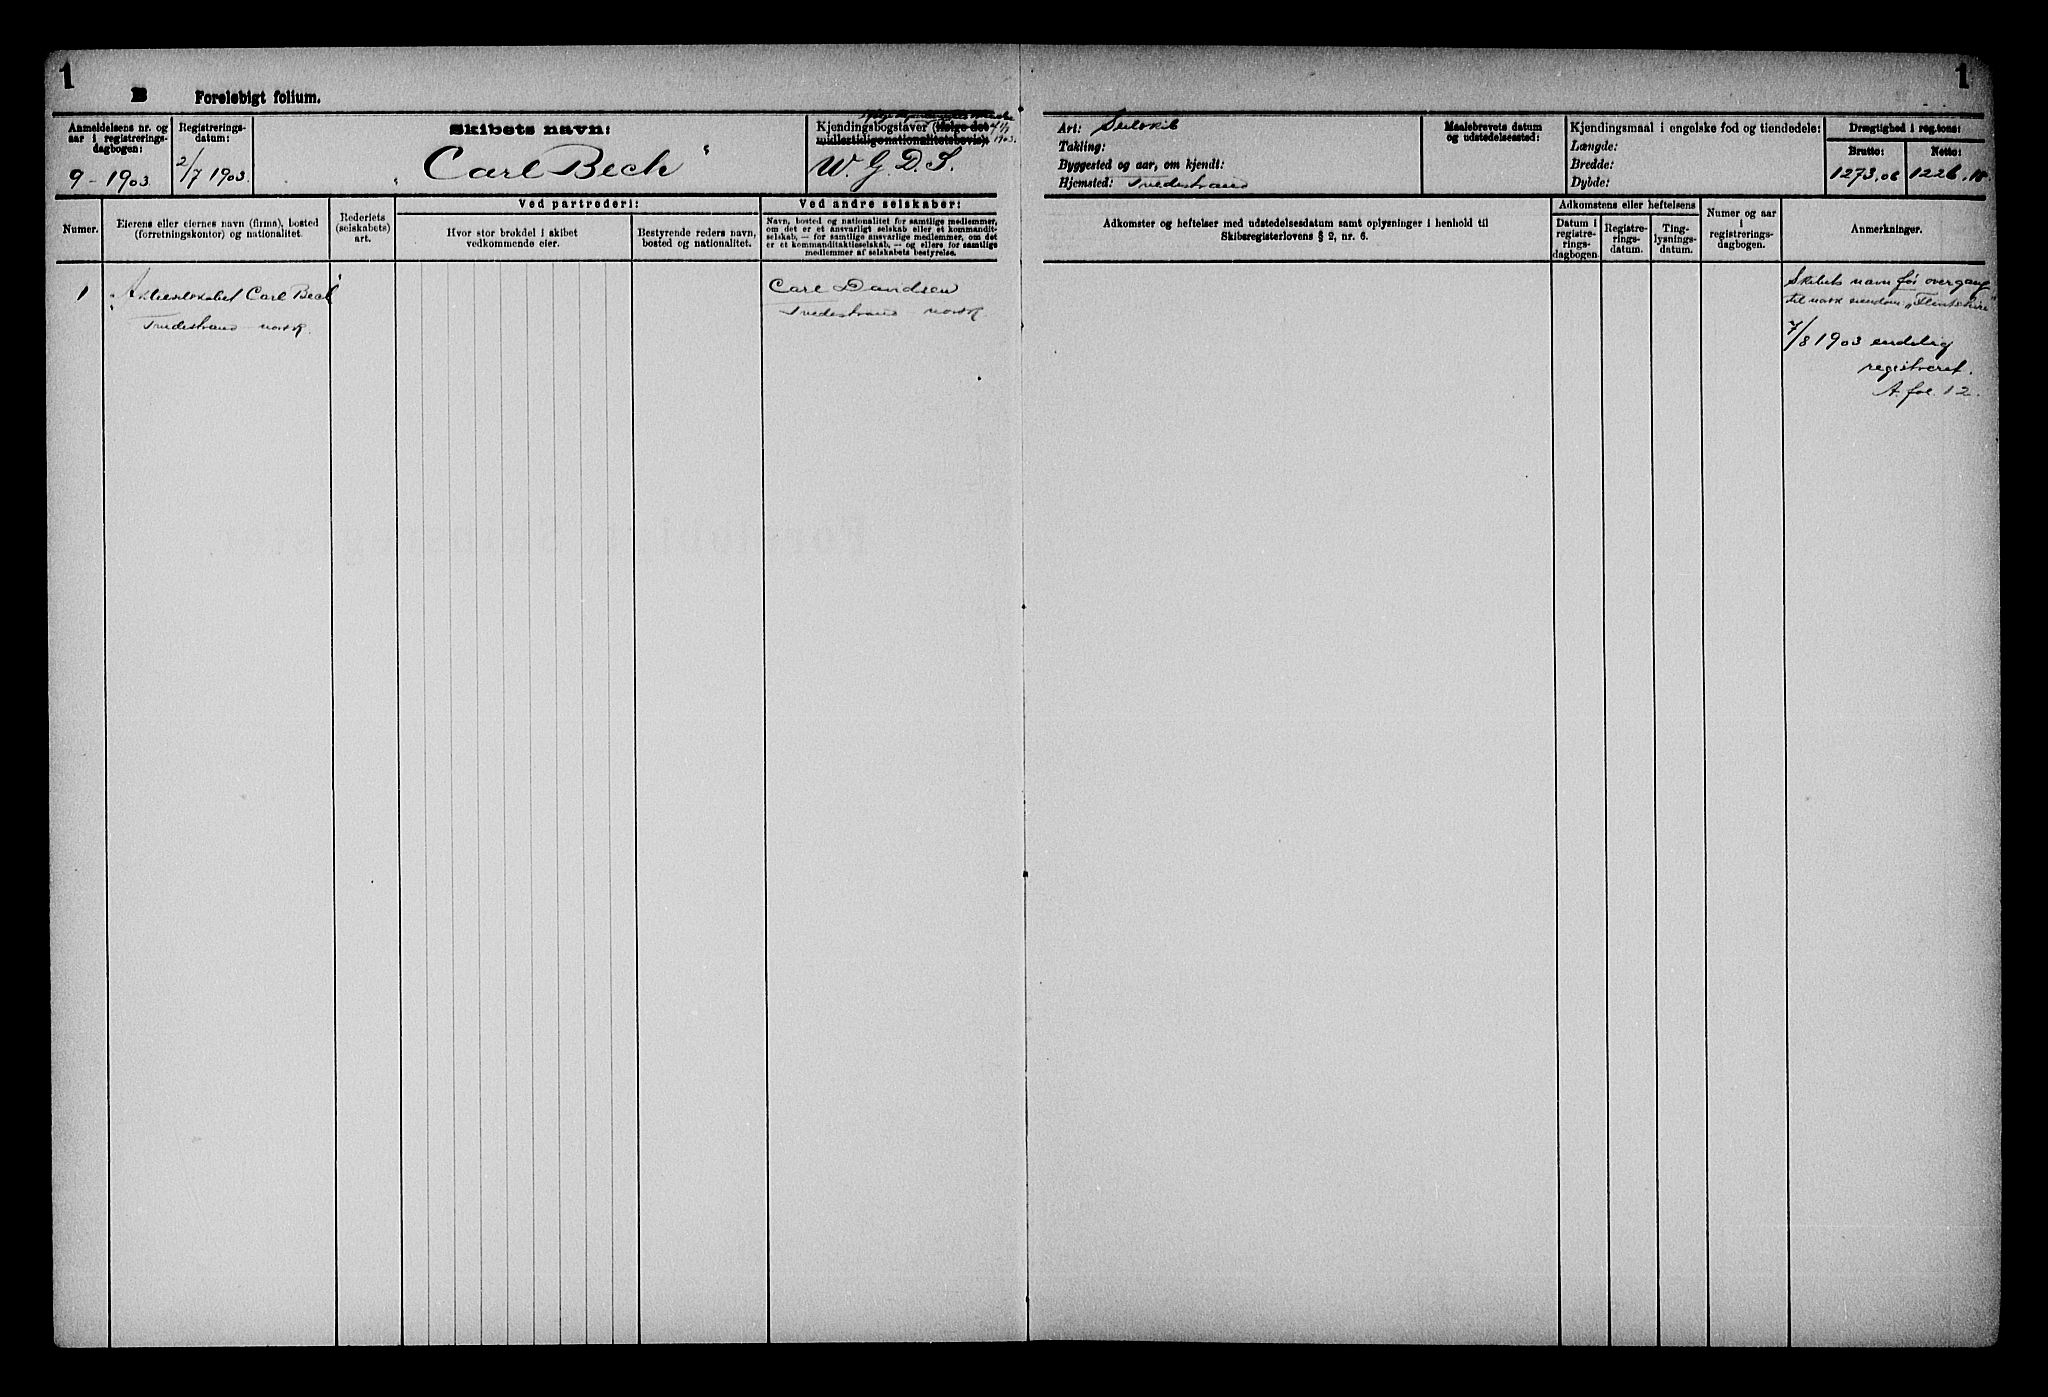 1
1
B Foreløbigt folium.
Anmeldelsens nr. og
aar i registrerings-
dagbogen:
9 - 1903
Registrerings-
datum:
2/7 1903.
Skibets navn:
"Carl Bech"
Kjendingsbogstaver (ifølge det
midlertidige nationalitetsbevis):
4/7
1903.
W. G. D. S.
Art: Seilskib
Takling:
Byggested og aar, om kjendt:
Hjemsted: Tvedestrand
Maalebrevets datum
og udstedelsessted:
Kjendingsmaal i engelske fod og tiendedele:
Længde:
Bredde:
Dybde:
Drægtighed i reg.tons:
Brutto: Netto:
1273.06 1226.10
Numer.
Eierens eller eiernes navn (firma), bosted
(forretningskontor) og nationalitet.
Rederiets
(selskabets)
art.
Ved partrederi:
Hvor stor brøkdel i skibet
vedkommende eier.
Bestyrende reders navn,
bosted og nationalitet.
Ved andre selskaber:
Navn, bosted og nationalitet for samtlige medlemmer,
om det er et ansvarligt selskab eller et kommandit-
selskab, — for samtlige ansvarlige medlemmer, om det
er et kommanditaktieselskab, — og ellers for samtlige
medlemmer af selskabets bestyrelse.
Adkomster og heftelser med udstedelsesdatum samt oplysninger i henhold til
Skibsregisterlovens § 2, nr. 6.
Adkomstens eller heftelsens
Datum i
registre-
rings-
dagbogen.
Registre-
rings-
datum.
Ting-
lysnings-
datum.
Numer og aar
i
registrerings-
dagbogen.
Anmerkninger.
1
"Aktieselskabet Carl Bech"
Tvedestrand norsk.
Carl Davidsen
Tvedestrand norsk.
Skibets navn før overgang
til norsk eiendom "Flintshire"
7/8 1903 endelig
registreret.
A. fol. 12.